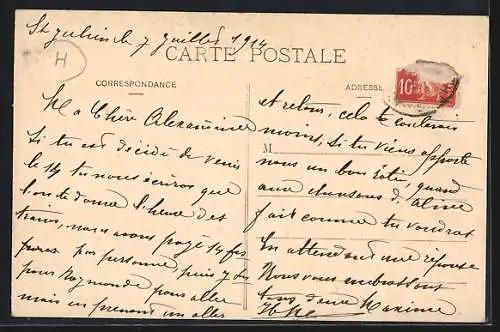 St Julien le 7 Juillet 1914
H
CARTE POSTALE
CORRESPONDANCE
ADRESSE
10
Ma Chère Alexandrine
Si tu es décidé de venir
le 14 tu nous écriras que
l'on te donne l'heure des
trains, nous avons payé 14 frs
par personne, puis 7 frs
pour Raymonde pour aller
mais en prenant un aller
et retour, cela te coûterais
moins, Si tu viens apporte
M
nous un bon rôti, quand
aux chansons d'Aline
fait comme tu voudras
En attendant une réponse
Nous vous embrassont
tous deux Maxime